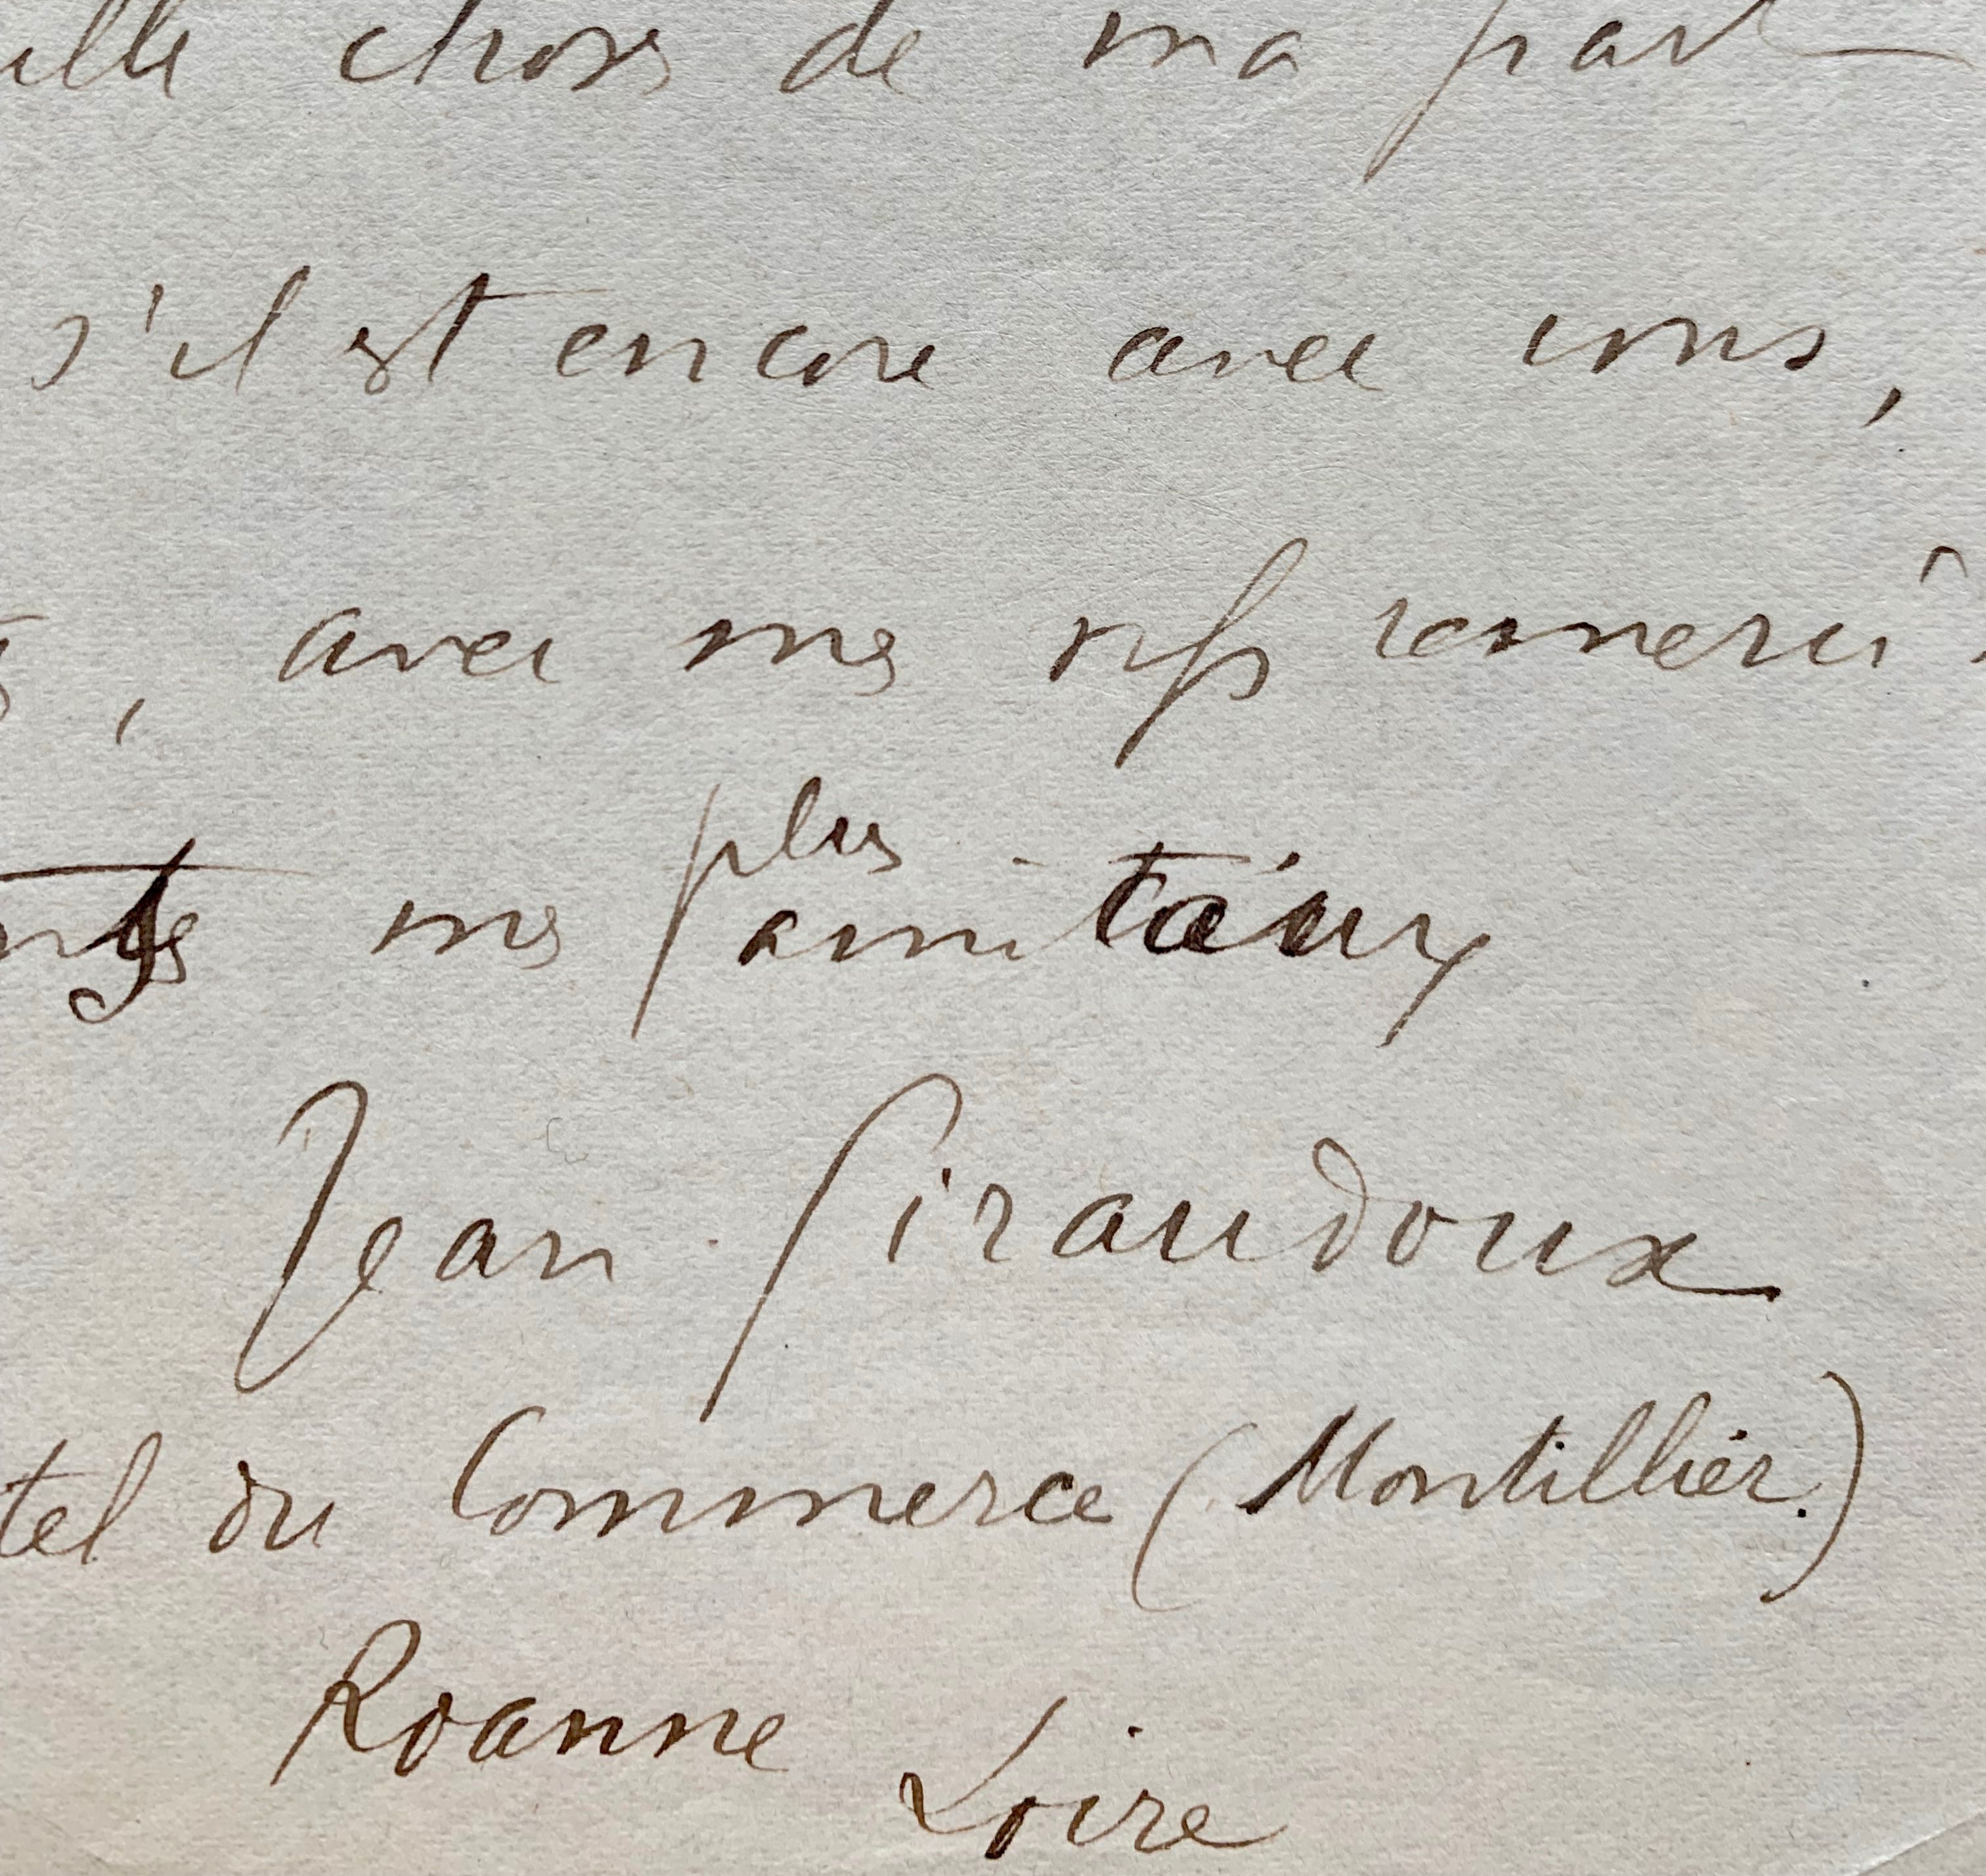 ille choses de ma part
s'il est encore avec vous,
, avec mes vifs remerci
mes plus amitaux
Jean Giraudoux
tel du Commerce (Montillier.)
Roanne Loire